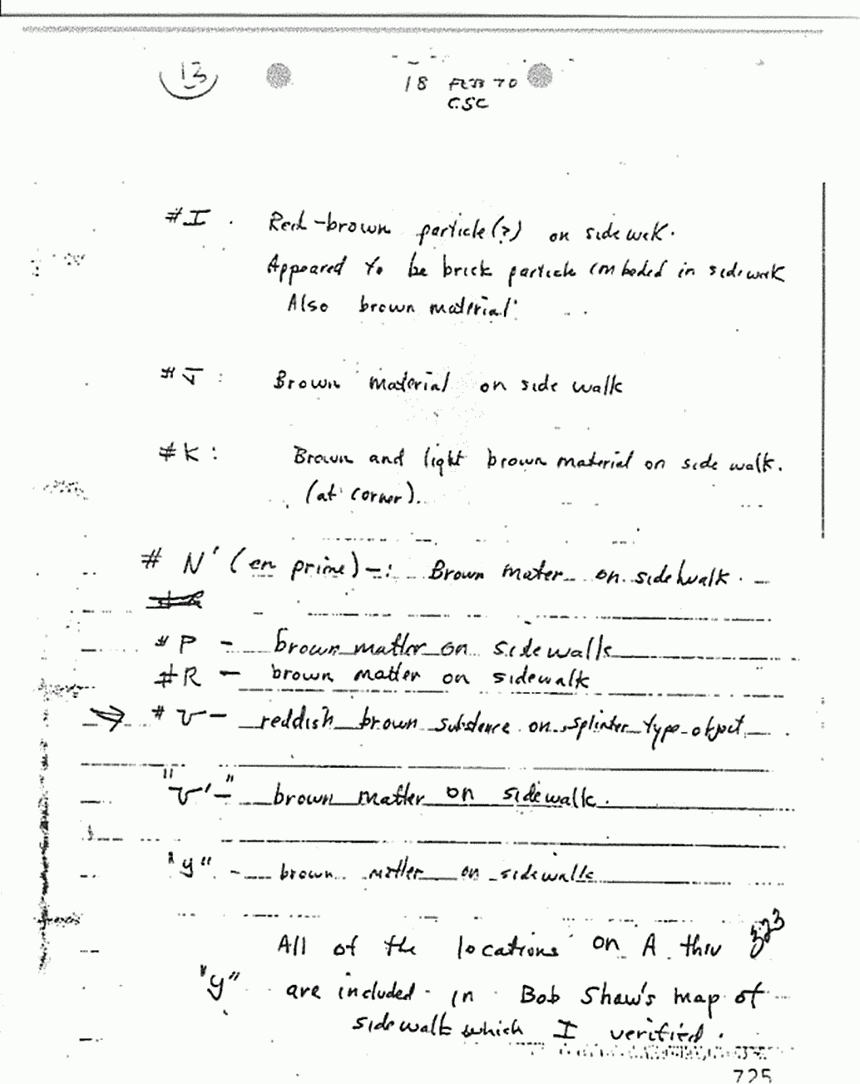 13
18 FEB 70
CSC
#I . Red-brown particle(?) on sidewak.
Appeared to be brick particle imbeded in sidewak
Also brown material
#J : Brown material on side walk
#K : Brown and light brown material on side walk.
(at corner).
# N' (en prime) -: Brown mater on sidewalk.
#P - brown matter on sidewalk
#R - brown matter on sidewalk
# V - reddish brown substence on splinter type object
"V'-" brown matter on sidewalk.
"y" - brown matter on sidewalk
323
All of the locations on A thru
"y" are included in Bob Shaw's map of
sidewalk which I verified.
725